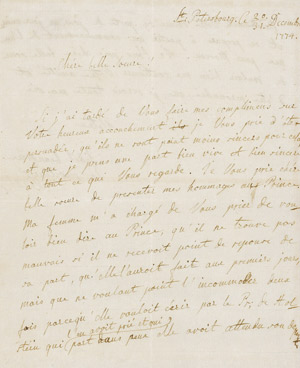 St. Petersbourg, ce 20 Decemb
31
1774.
Chere belle Soeur!
Si j'ai tardé de Vous faire mes complimens sur
Votre heureux accouchement je Vous prie d'être
persuadée, qu'ils ne sont point moins sinceres pour cela
et que je prens une part bien vive et bien sincere
à tout ce qui Vous regarde. Je Vous prie chere
belle soeur de presenter mes hommages au Prince.
Ma femme m'a chargé de Vous prier de vou
loir bien dire au Prince, qu'il ne trouve pas
mauvais s'il ne recevroit point de reponse de
sa part, qu'elle l'auroit fait aux premiers jours,
mais que ne voulant point l'incommoder deux
fois parcequ'elle vouloit écrir par le Pr: de Hol
stein qui part dans peu elle avoit attendu